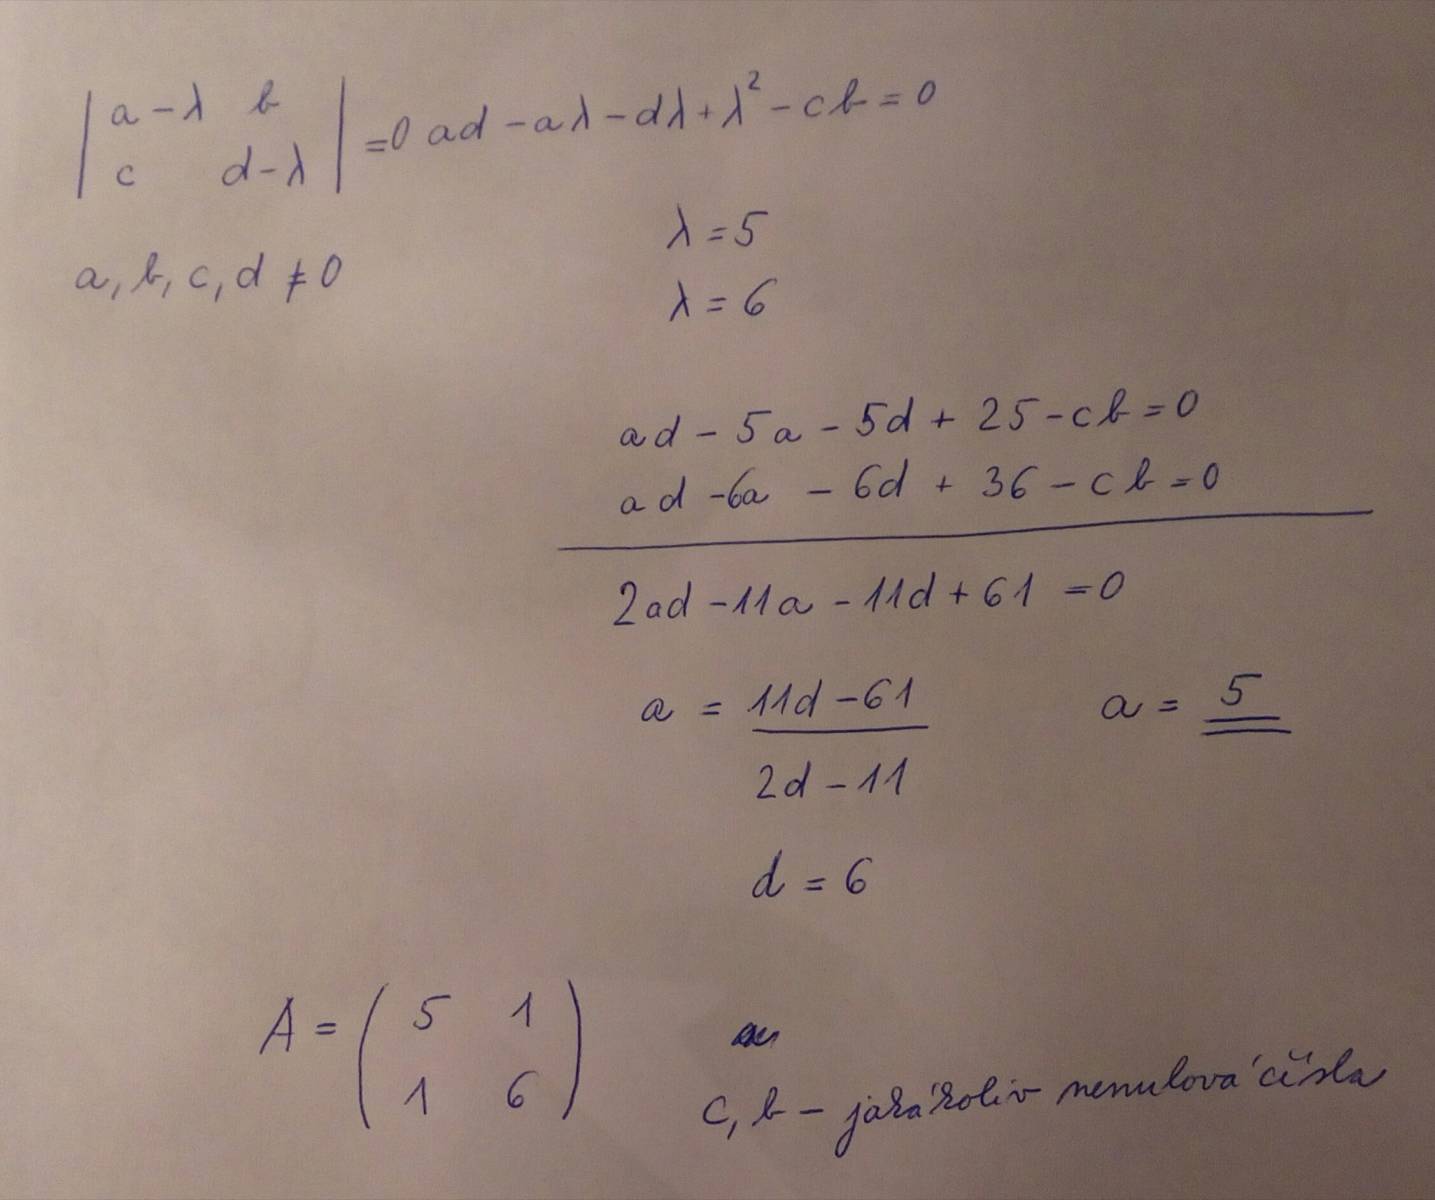 | a-λ b | = 0 ad - aλ - dλ + λ² - cb = 0
| c d-λ |
λ = 5
a, b, c, d ≠ 0
λ = 6
ad - 5a - 5d + 25 - cb = 0
ad - 6a - 6d + 36 - cb = 0
2ad - 11a - 11d + 61 = 0
a = 11d - 61 a = 5
2d - 11
d = 6
A = ( 5 1 )
( 1 6 )
c, b - jakákoliv nenulová čísla